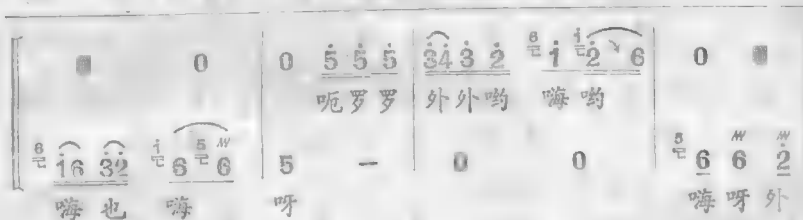 0 0 5 5 5 3 4 3 2 6 1 1 2 6 0
呃罗罗 外外哟 嗨哟
6 1 6 3 2 1 6 5 6 5 - 0 0 5 6 6 2
嗨也 嗨 呀 嗨呀外